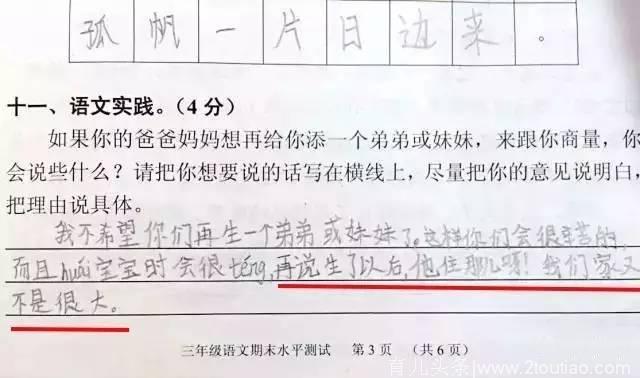 孤帆一片日边来。
十一、语文实践。（4分）
如果你的爸爸妈妈想再给你添一个弟弟或妹妹，来跟你商量，你
会说些什么？请把你想要说的话写在横线上，尽量把你的意见说明白，
把理由说具体。
我不希望你们再生一个弟弟或妹妹了。这样你们会很辛苦的，
而且huái宝宝时会很téng，再说生了以后，他住那儿呀！我们家又
不是很大。
三年级语文期末水平测试 第3页 （共6页）
育儿头条 www.2toutiao.com